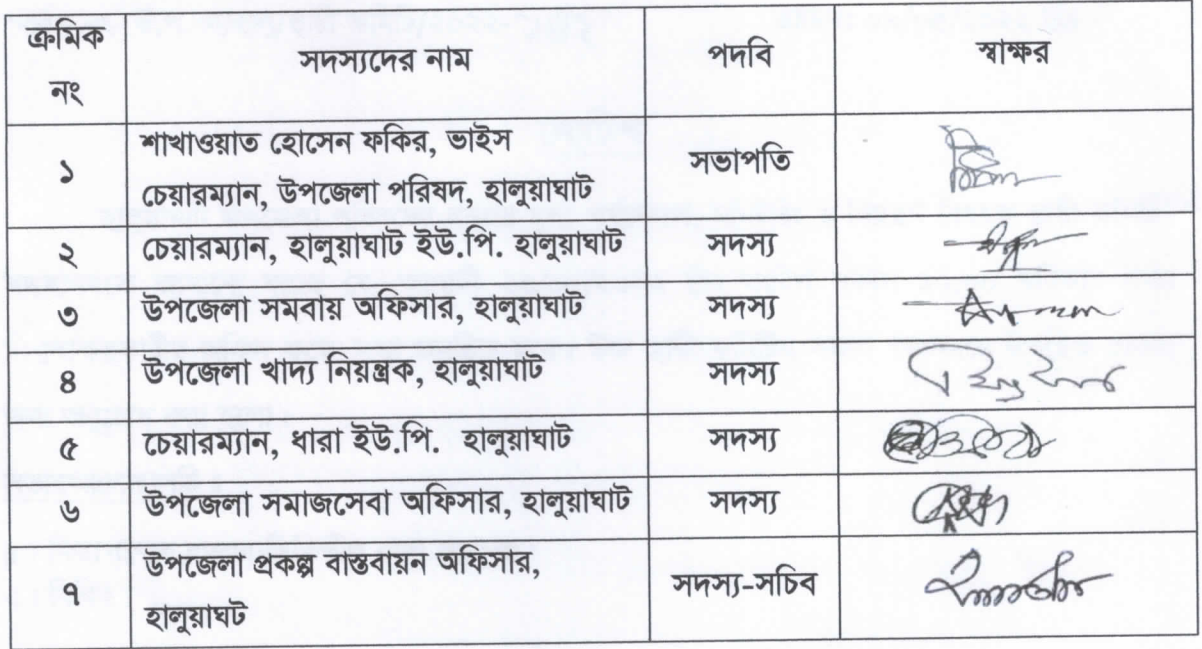 ক্রমিক নং সদস্যদের নাম পদবি স্বাক্ষর
১ শাখাওয়াত হোসেন ফকির, ভাইস
চেয়ারম্যান, উপজেলা পরিষদ, হালুয়াঘাট সভাপতি
২ চেয়ারম্যান, হালুয়াঘাট ইউ.পি. হালুয়াঘাট সদস্য
৩ উপজেলা সমবায় অফিসার, হালুয়াঘাট সদস্য
৪ উপজেলা খাদ্য নিয়ন্ত্রক, হালুয়াঘাট সদস্য
৫ চেয়ারম্যান, ধারা ইউ.পি. হালুয়াঘাট সদস্য
৬ উপজেলা সমাজসেবা অফিসার, হালুয়াঘাট সদস্য
৭ উপজেলা প্রকল্প বাস্তবায়ন অফিসার,
হালুয়াঘট সদস্য-সচিব